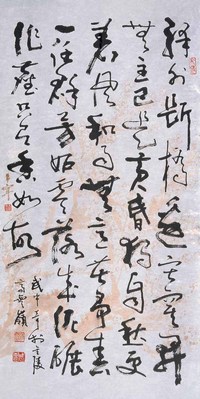 驛外斷橋邊寂寞開
無主已是黃昏獨自愁更
著風和雨無意苦爭春
一任群芳妒零落成泥碾
作塵只有香如故